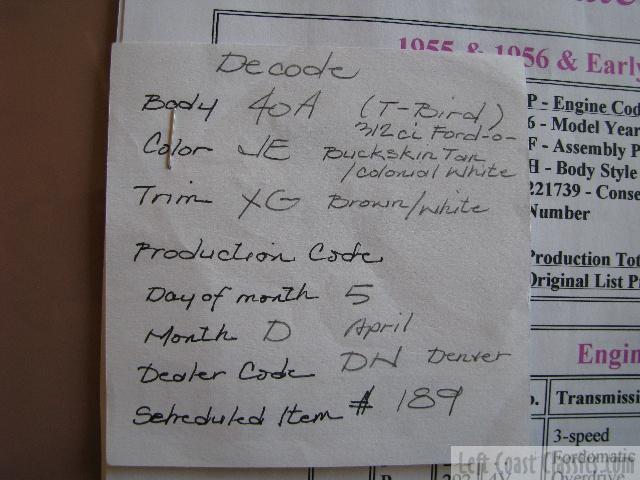 1955 & 1956 & Early
Decode
Body 40A (T-Bird)
312ci Ford-o-
Color JE Buckskin Tan
/Colonial White
Trim XG Brown/White
Production Code
Day of month 5
Month D April
Dealer Code DN Denver
Scheduled Item # 189
P - Engine Cod
6 - Model Year
F - Assembly P
H - Body Style
221739 - Conse
Number
Production Tot
Original List P
Engin
Transmissi
3-speed
Fordomatic
Overdrive
292 4V
Left Coast Classics.com